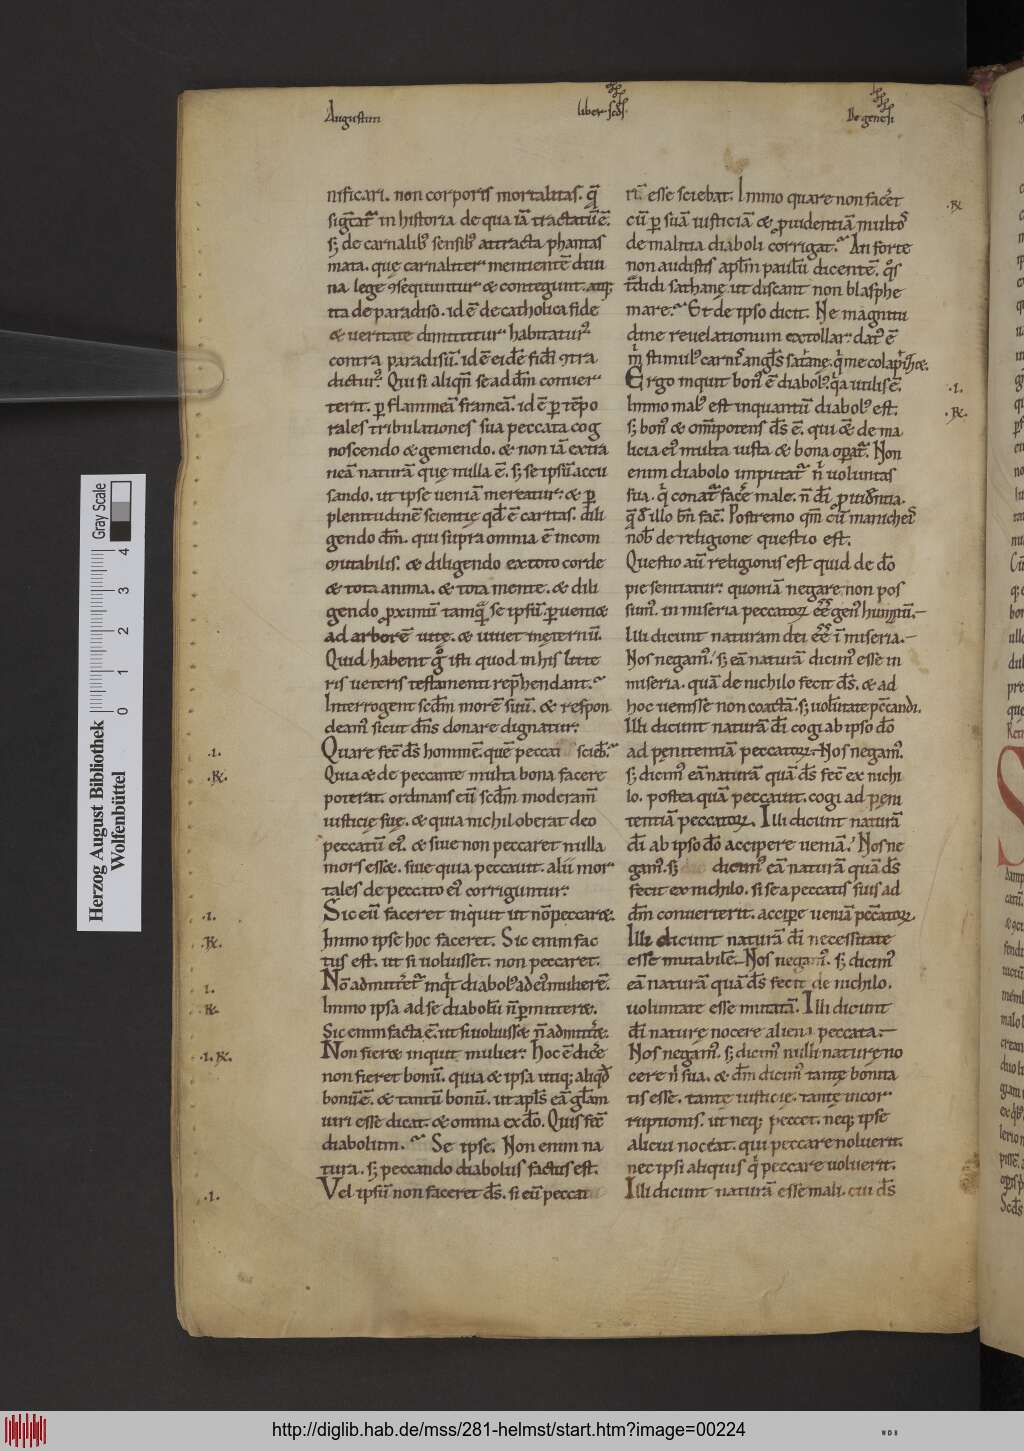 Augustini
liber scdꝰ
De genesi
nificari. non corporis mortalitas. q̄
signat᷑ in historia de qua iā tractatū ē.
sꝫ de carnalibꝰ sensibꝰ attracta phantas
mata. quę carnaliter mentientē diui
na lege ꝯsequuntur & contegunt. atqꝫ
ita de paradiso. id ē de catholica fide
& veritate dimittitur habitatur᷑
contra paradisū. id ē eidē fidei ꝯtra
dictur᷑. Qui si aliqn̄ se ad dm̄ conuer
terit. ꝑ flammeā frameā. id ē ꝑ tēpo
rales tribulationes sua peccata cog
noscendo & gemendo. & non iā extra
neā naturā quę nulla ē. sꝫ se ipsū accu
sando. ut ipse ueniā mereatur. & ꝑ
plenitudinē scientię qd̄ ē caritas. dili
gendo dm̄. qui supra omnia ē incom
mutabilis. & diligendo ex toto corde
& tota anima. & tota mente. & dili
gendo ꝓximū tamq̄ se ipsū. ꝑueniæ
ad arborē uitę. & uiuet in ęternū.
Quid habent g͛ isti quod in his litte
ris ueteris testamenti rep̄hendant.
Interrogent scd̄m morē suū. & respon
deam᷒ sicut dn̄s donare dignatur.
Quare fec̄ ds̄ hominē. quē peccat scieb̄.
Quia & de peccante multa bona facere
poterat. ordinans eū scd̄m moderam̄
iusticię suę. & quia nichil oberat deo
peccatū ei᷒. & siue non peccaret nulla
mors esset. siue quia peccauit. alii mor
tales de peccato ei᷒ corriguntur.
Sic eni faceret inquit ut nō peccaret.
Immo ipse hoc faceret. Sic enim fac
tus est. ut si uoluisset. non peccaret.
Nō admitteret᷑ inqt diabol᷒ ad ei᷒ mulierē.
Immo ipsa ad se diabolū n̄ ꝑmitteret.
Sic enim facta ē. ut si uoluisset n̄ admitteret.
Non fieret inquit mulier. Hoc ē dicere
non fieret bonū. quia & ipsa utiqꝫ aliqd̄
bonū ē. & tantū bonū. ut apls̄ eā gl̄am
uiri esse dicat. & omnia ex dō. Quis fec̄
diabolum. Se ipse. Non enim na
tura. sꝫ peccando diabolus factus est.
Vel ipsū non faceret ds̄. si eū peccat
rū esse sciebat. Immo quare non faceret
cū ꝑ suā iusticiā & ꝓuidentiā multos
de malitia diaboli corrigat. An forte
non audistis aplm̄ paulū dicentē. q͛s
t͛didi sathanę ut discant non blasphe
mare. Et de ipso dicit. Ne magnitu
dine reuelationum extollar. dat᷒ ē
m͛ stimul᷒ carnis angls̄ satanę. q͛ me colaphizet.
Ergo inquit bon᷒ ē diabol᷒. q͛a utilis ē.
Immo mal᷒ est inquantū diabol᷒ est.
sꝫ bon᷒ & omp̄otens ds̄ ē. qui & de ma
licia ei᷒ multa iusta & bona opat᷑. Non
enim diabolo imputat᷑ n͛ uoluntas
sua. q͛ conat᷑ facere male. n̄ di ꝓuidentia.
q̄ de illo bn̄ fac̄. Postremo qm̄ cū manicheis
nob̄ de religione questio est.
Questio aū religionis est quid de dō
pie sentiatur. quoniā negare non pos
sum᷒. in miseria peccatorū eē gen᷒ humanū.
Illi dicunt naturam dei eē ī miseria.
Nos negam᷒. sꝫ eā naturā dicim᷒ esse in
miseria. quā de nichilo fecit ds̄. & ad
hoc uenisse non coactā. sꝫ uoluntate peccandi.
Illi dicunt naturā di cogi ab ipso dō
ad penitentiā peccatorū. Nos negam᷒.
sꝫ dicim᷒ eā naturā quā ds̄ fec̄ ex nichi
lo. postea quā peccauit. cogi ad peni
tentiā peccatorū. Illi dicunt naturā
di ab ipso dō accipere ueniā. Nos ne
gam᷒. sꝫ dicim᷒ eā naturā quā ds̄
fecit ex nichilo. si se a peccatis suis ad
dm̄ conuerterit. accipere ueniā peccatorū.
Illi dicunt naturā di necessitate
esse mutabilē. Nos negam᷒. sꝫ dicim᷒
eā naturā quā ds̄ fecit de nichilo.
uoluntate esse mutatā. Illi dicunt
di naturę nocere aliena peccata.
Nos negam᷒. sꝫ dicim᷒ nulli naturę no
cere n͛ sua. & dm̄ dicim᷒ tantę bonita
tis esse. tantę iusticię. tantę incor
ruptionis. ut neqꝫ peccet. neqꝫ ipse
alicui noceat. qui peccare noluerit.
nec ipsi aliquis q͛ peccare uoluerit.
Illi dicunt naturā esse mali. cui ds̄
Herzog August Bibliothek
Wolfenbüttel
Gray Scale
0 1 2 3 4
http://diglib.hab.de/mss/281-helmst/start.htm?image=00224